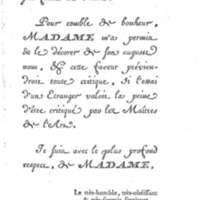 Pour comble de bonheur,
MADAME m'a permis
de le décorer de son auguste
nom, & cette faveur prévien-
droit toute critique, si l'essai
d'un Etranger valoit la peine
d'être critiqué par les Maîtres
de l'Art.
Je suis avec le plus profond
respect, de MADAME,
Le très-humble, très-obéissant